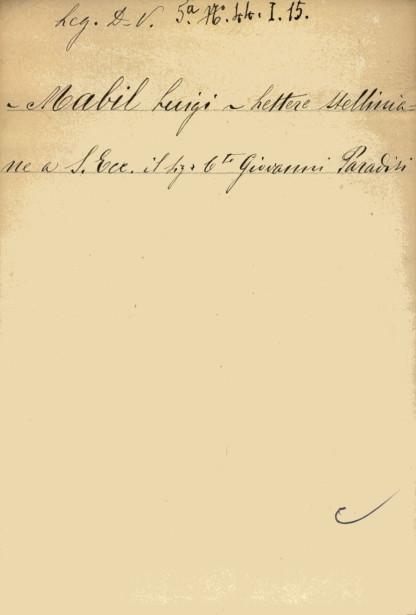 Leg. D. V. 5.ª N.º 44. I. 15.
~ Mabil Luigi ~ Lettere stellinia=
ne a S. Ecc. il Sig.r C.te Giovanni Paradisi